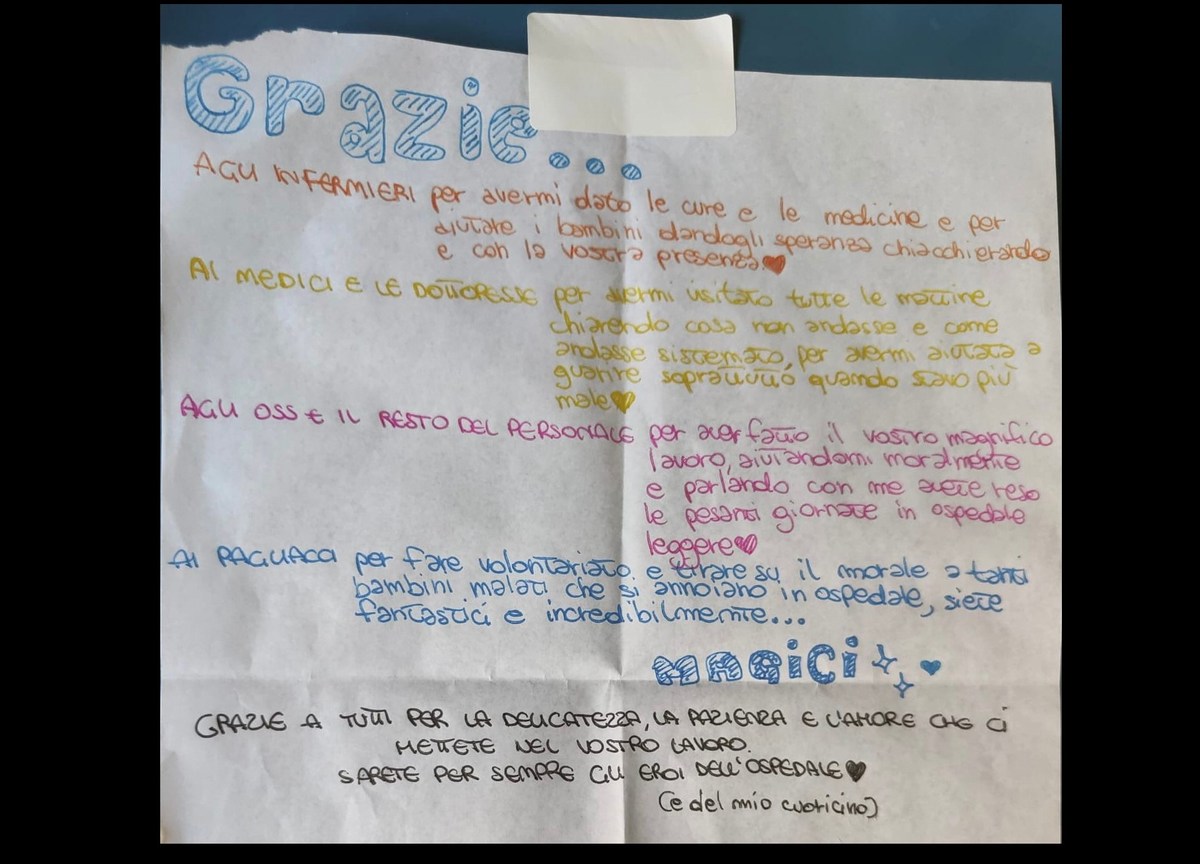 Grazie...
AGLI INFERMIERI per avermi dato le cure e le medicine e per
aiutare i bambini dandogli speranza chiacchierando
e con la vostra presenza♥
AI MEDICI E LE DOTTORESSE per avermi visitato tutte le mattine
chiarendo cosa non andasse e come
andasse sistemato, per avermi aiutata a
guarire soprattutto quando stavo più
male♥
AGLI OSS E IL RESTO DEL PERSONALE per aver fatto il vostro magnifico
lavoro, aiutandomi moralmente
e parlando con me avete reso
le pesanti giornate in ospedale
leggere♥
AI PAGLIACCI per fare volontariato e tirare su il morale a tanti
bambini malati che si annoiano in ospedale, siete
fantastici e incredibilmente...
MAGiCi
GRAZIE A TUTTI PER LA DELICATEZZA, LA PAZIENZA E L'AMORE CHE CI
METTETE NEL VOSTRO LAVORO.
SARETE PER SEMPRE GLI EROI DELL'OSPEDALE♥
(e del mio cuoricino)